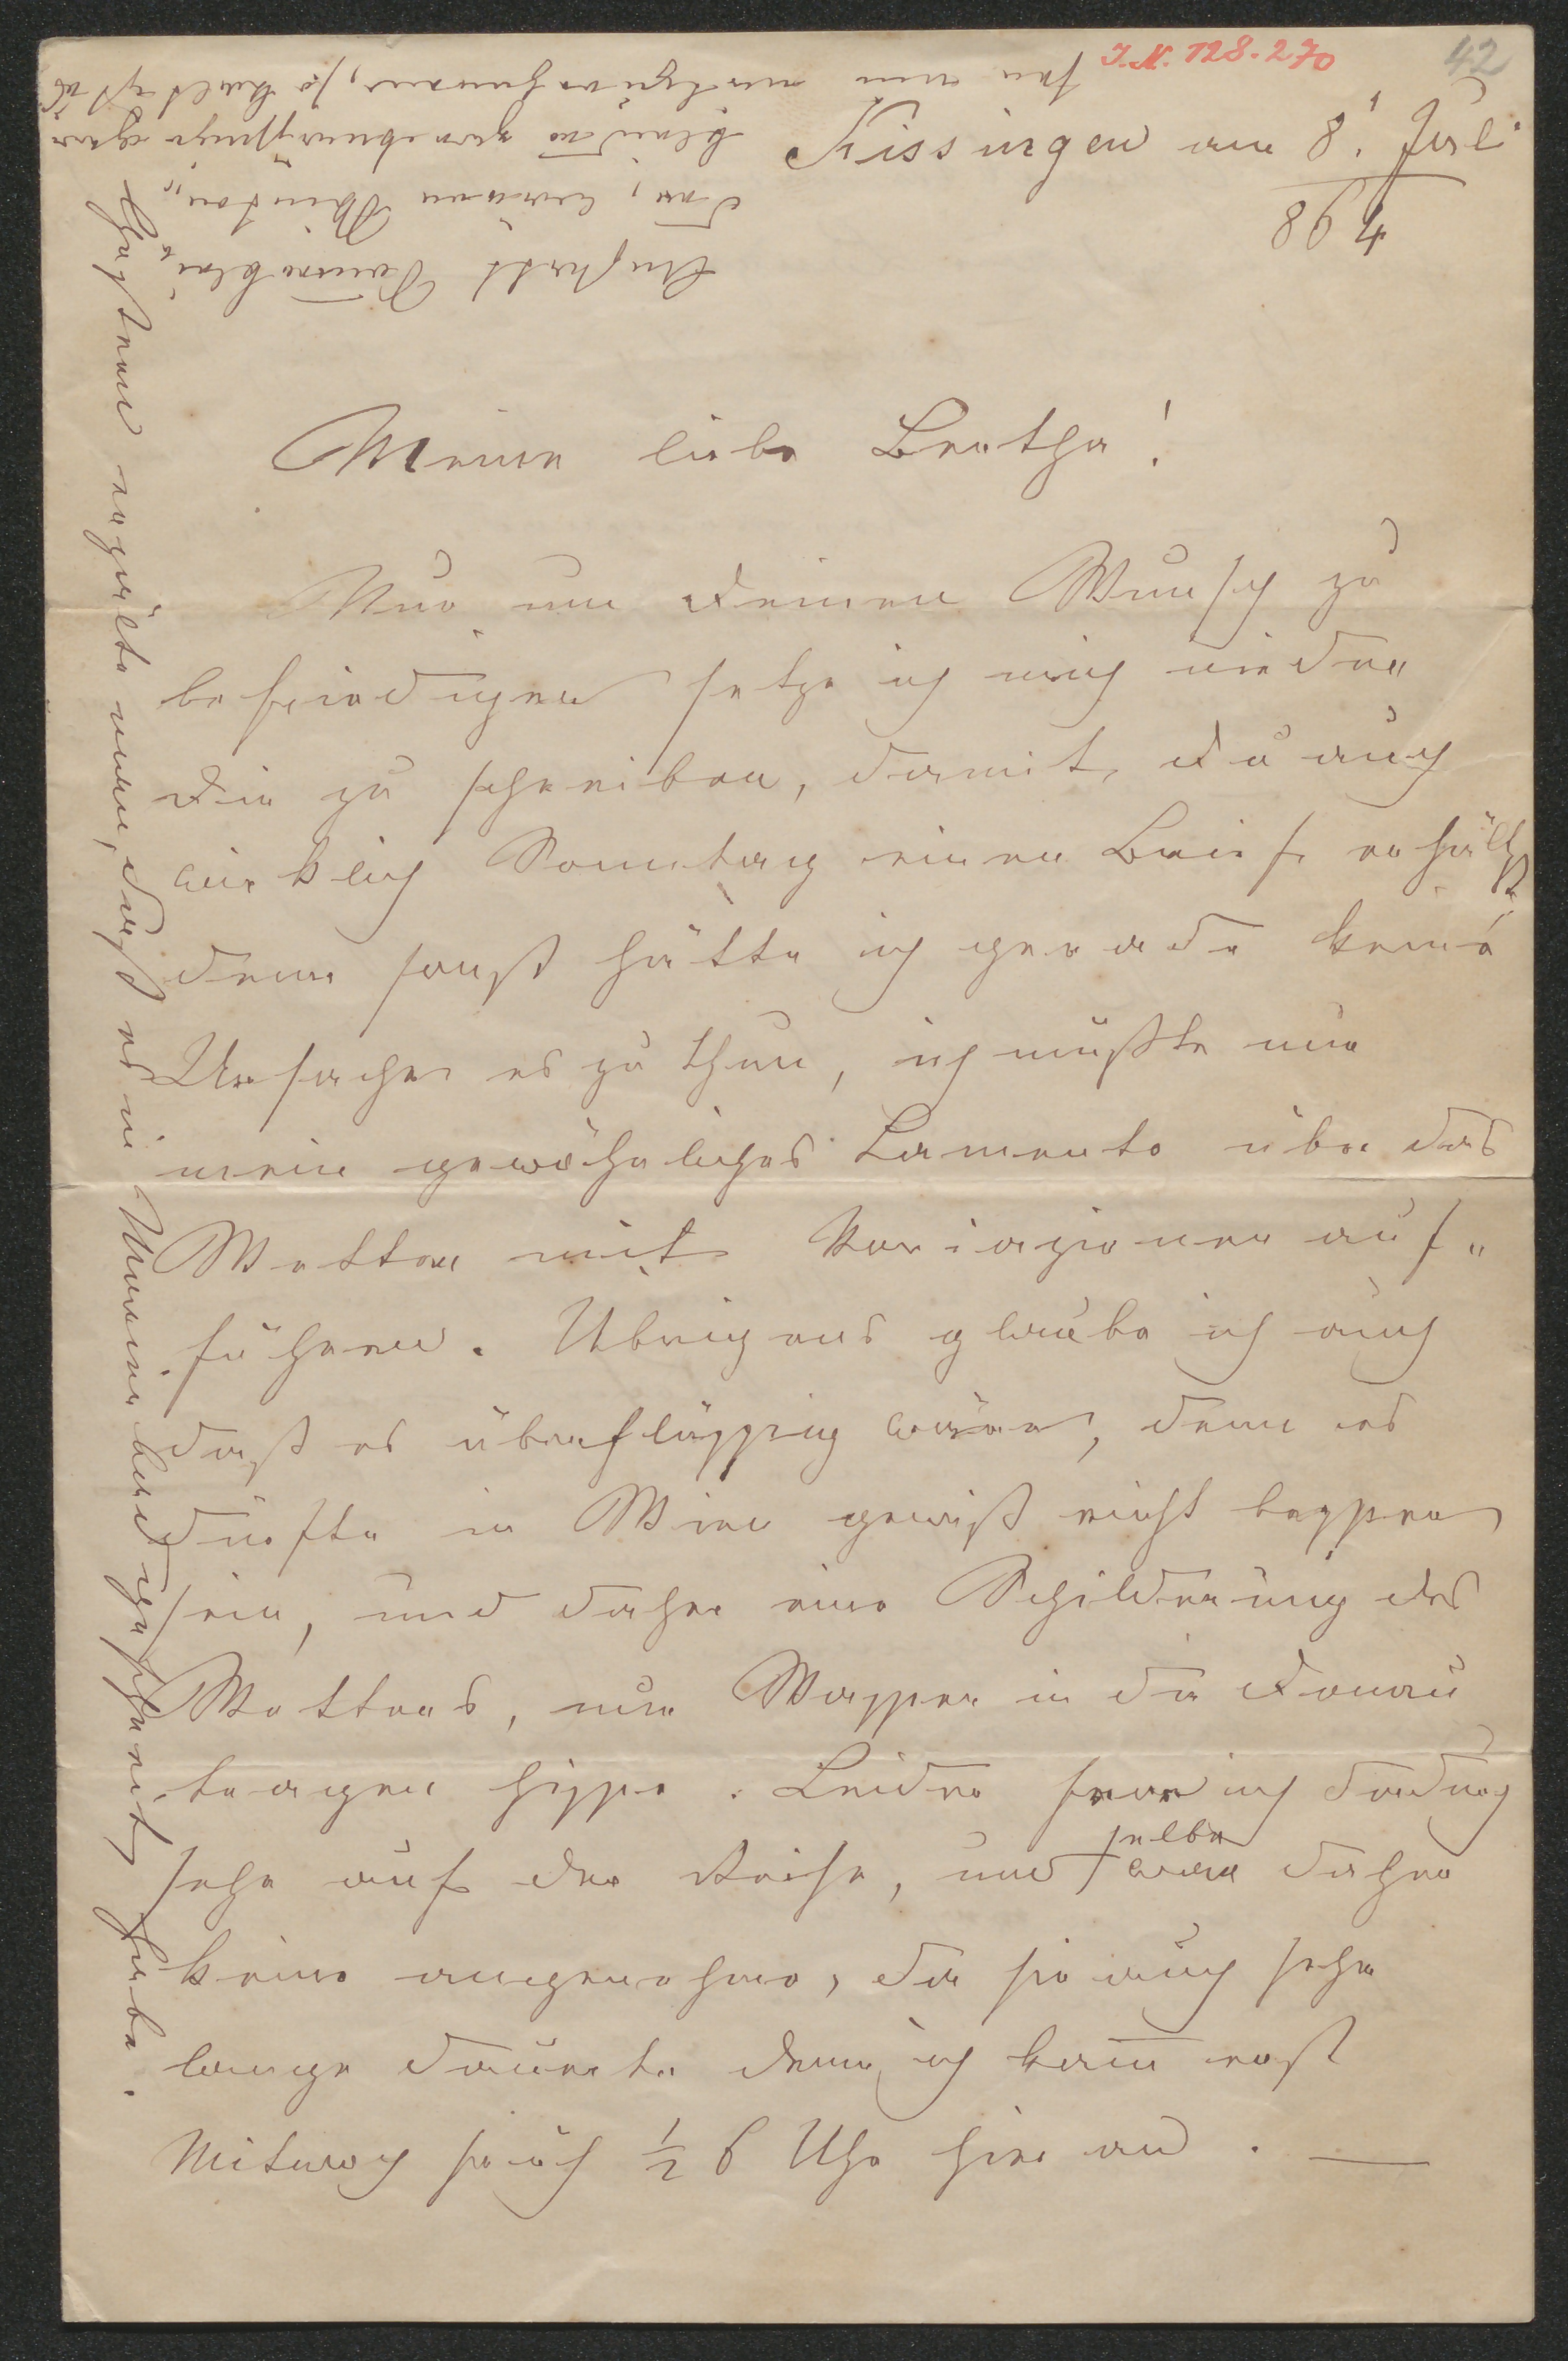 I.N. 128.270
42
Kissingen am 8. Juli
894
Meine liebe Bertha!
Nur um Deinen Wunsch zu
befriedigen setze ich mich nieder
Dir zu schreiben, damit Du auch
wirklich Sonntag einen Brief erhältst,
denn sonst hätte ich gerade keine
Ursache es zu thun, ich müßte nur
mein gewöhnliches Lamento über das
Wetter mit Variazionen auf„
führen. Übrigens glaube ich auch
daß es überflüssig wäre, denn es
dürfte in Wien gewiß nicht besser
sein, und daher eine Schilderung des
Wetters, nur Wasser in die Donau
tragen hisse. Leider fror ich dadurch
sehr auf der Reise, und selbe
war daher
keine angenehme, da sie auch sehr
lange dauerte denn ich kam̅ erst
Mitwoch früh ½ 6 Uhr hier an. —
Gestern erzälte man, daß es in
geschneit habe.